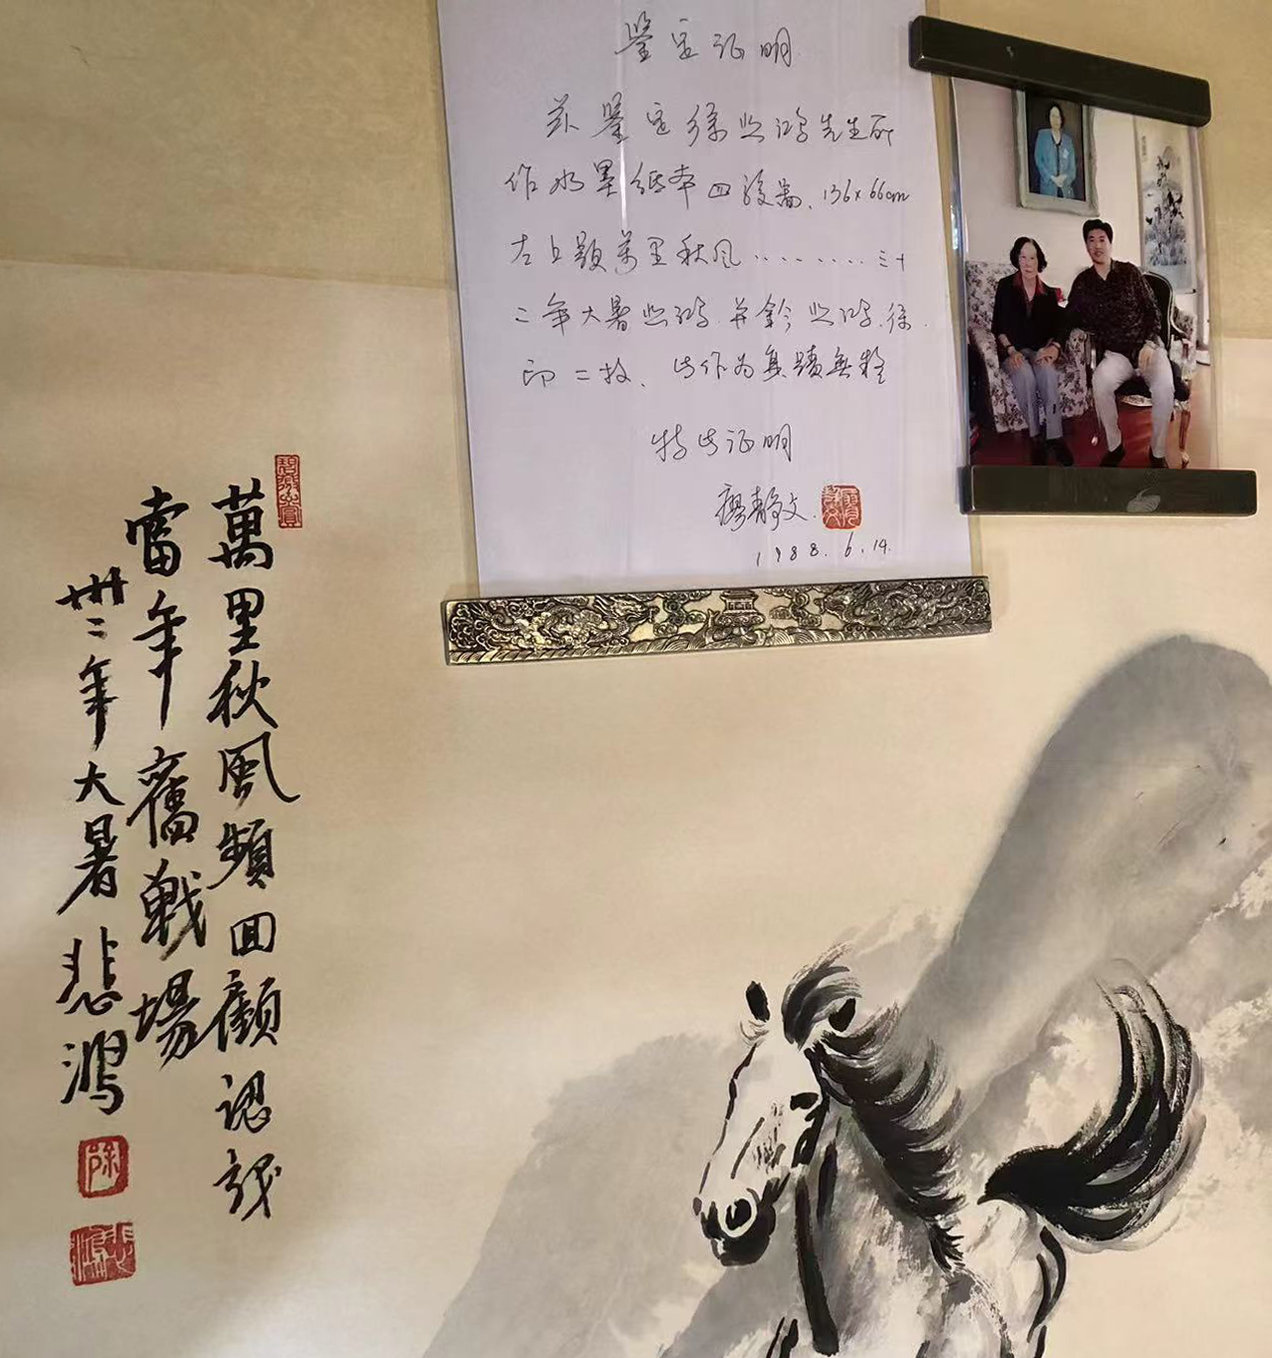 鉴定证明
兹鉴定徐悲鸿先生所
作水墨纸本四骏图、136×66cm
左上题万里秋风........三十
二年大暑悲鸿.并钤悲鸿.徐.
印二枚、此作为真蹟无疑
特此证明
廖静文
1988.6.14.
萬里秋風頻回顧認識
當年舊戰場
卅二年大暑悲鴻
徐
悲鴻